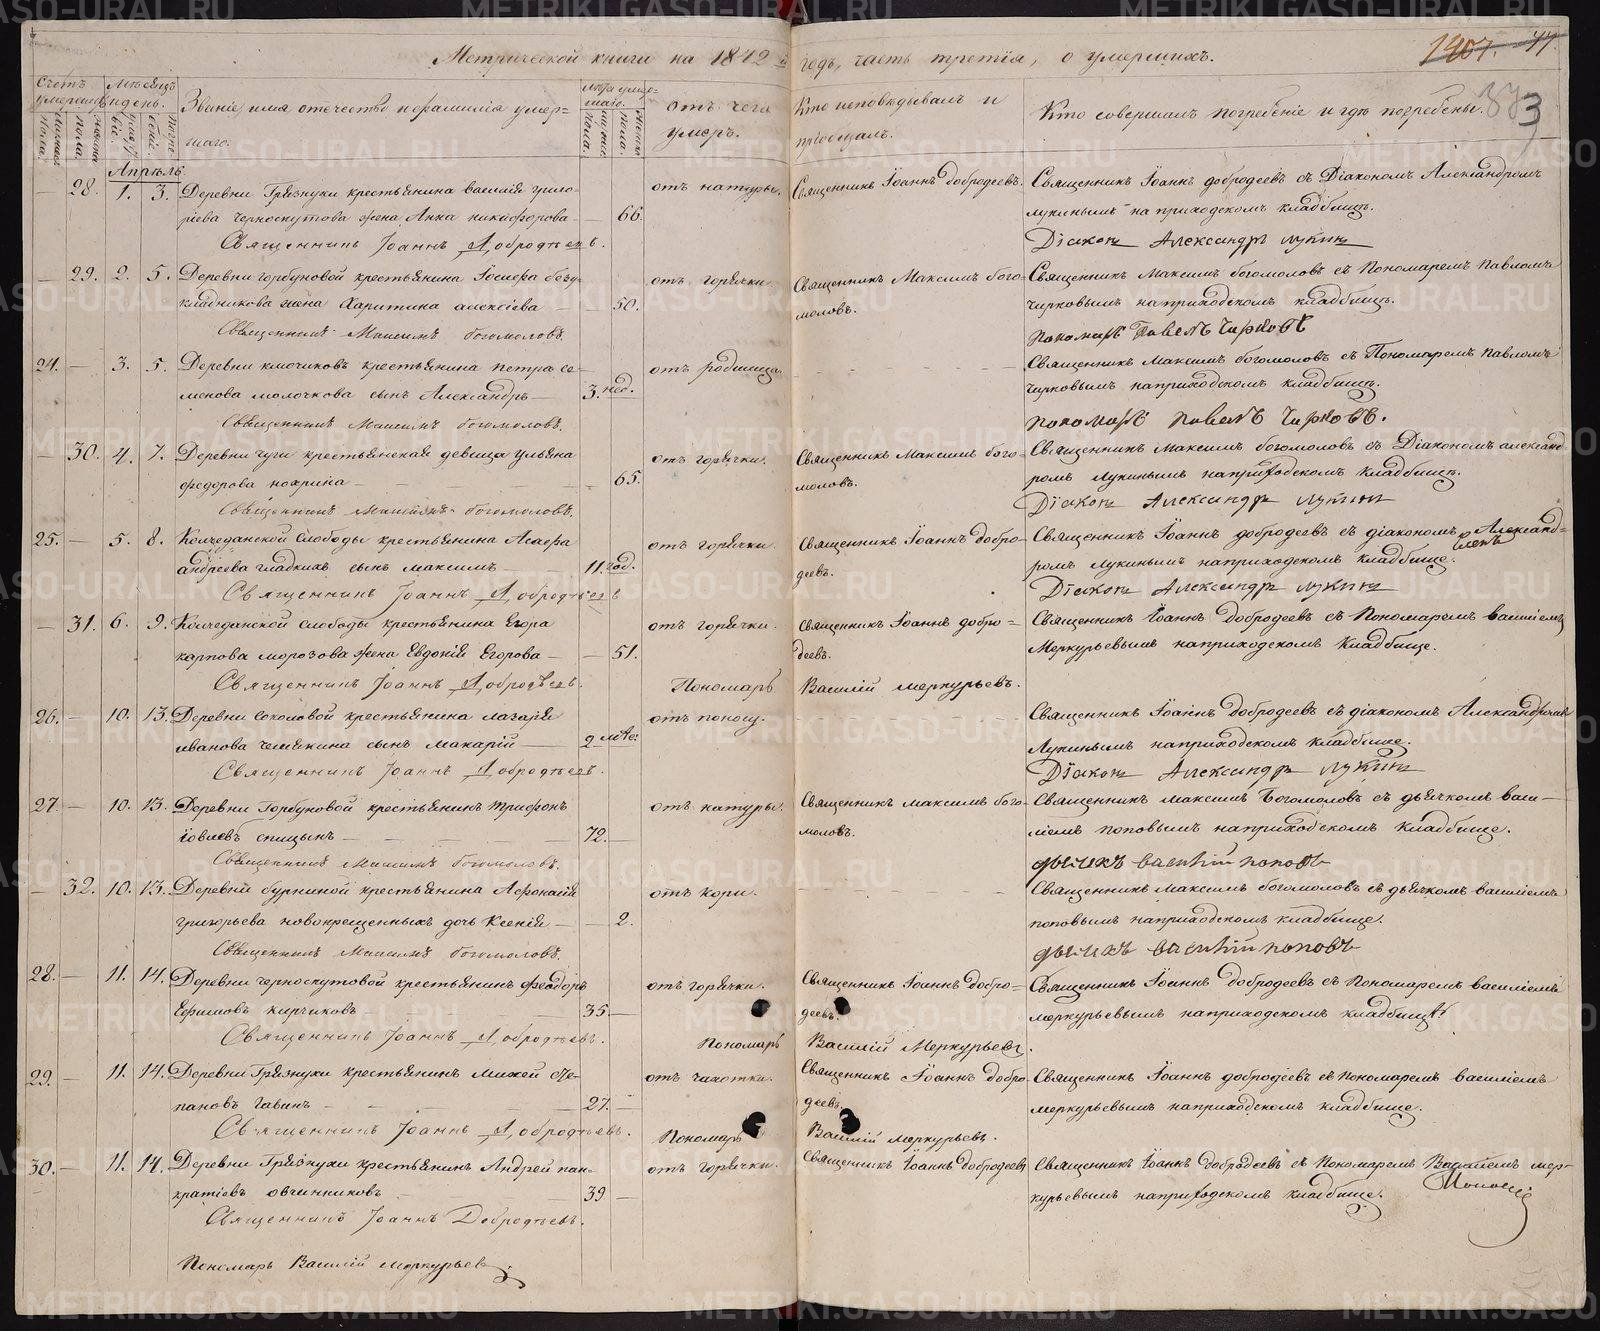 Метрической книги на 1872й годъ, часть третiя, о умершихъ.
1407. 44
33
Счетъ умершихъ
Мѣсяцъ и день.
Званiе, имя отечество и фамилiя умер=
шаго.
Лѣта умер-
шаго.
отъ чего
умеръ.
Кто исповѣдывалъ и
прiобщалъ.
Кто совершалъ погребенiе и гдѣ погребены.
Апрѣль
— 28. 1. 3. Деревни Грязнухи крестьянина Василiя Григо-
рiева Черноскутова жена Анна Никифорова — 66.
отъ натуры.
Священникъ Iоаннъ Добродѣевъ.
Священникъ Iоаннъ Добродѣевъ съ Дiакономъ Александромъ
Лукинымъ на приходскомъ кладбищѣ.
Священникъ Iоаннъ Добродѣевъ.
Дiаконъ Александръ Лукинъ
— 29. 2. 5. Деревни Горбуновой крестьянина Iосифа Безу-
кладникова жена Харитина Алексiева — 50.
отъ горячки.
Священникъ Максимъ Бого-
моловъ.
Священникъ Максимъ Богомоловъ съ Пономаремъ Павломъ
Чирковымъ на приходскомъ кладбищѣ.
Священникъ Максимъ Богомоловъ.
Пономарь Павелъ Чирковъ
24. — 3. 5. Деревни Ключиковъ крестьянина Петра Се-
менова Молочкова сынъ Александръ — 3. нед.
отъ родимца.
Священникъ Максимъ Богомоловъ съ Пономаремъ Павломъ
Чирковымъ на приходскомъ кладбищѣ.
Священникъ Максимъ Богомоловъ.
Пономарь Павелъ Чирковъ.
— 30. 4. 7. Деревни Чуги крестьянская девица Ульяна
Федорова — 65.
отъ горячки.
Священникъ Максимъ Бого-
моловъ.
Священникъ Максимъ Богомоловъ съ Дiакономъ Александ-
ромъ Лукинымъ на приходскомъ кладбищѣ.
Священникъ Максимъ Богомоловъ.
Дiаконъ Александръ Лукинъ
25. — 5. 8. Колчеданской Слободы крестьянина Асафа
Андреева Гладкихъ сынъ Максимъ — 11. год.
отъ горячки.
Священникъ Iоаннъ Добро-
деевъ.
Священникъ Iоаннъ Добродеевъ съ дiакономъ Александ=
ромъ Лукинымъ на приходскомъ кладбище.
Священникъ Iоаннъ Добродѣевъ
Дiаконъ Александръ Лукинъ
— 31. 6. 9. Колчеданской слободы крестьянина Егора
Карпова Морозова жена Евдокiя Егорова — 51.
отъ горячки.
Священникъ Iоаннъ Добро=
деевъ.
Священникъ Iоаннъ Добродеевъ съ Пономаремъ Василiемъ
Меркурьевымъ на приходскомъ кладбище.
Священникъ Iоаннъ Добродѣевъ.
Пономарь Василiй Меркурьевъ.
26. — 10. 13. Деревни Соколовой крестьянина Лазаря
Иванова Чемякина сынъ Макарiй — 2 мѣс:
отъ поносу.
Священникъ Iоаннъ Добродеевъ съ дiакономъ Александромъ
Лукинымъ на приходскомъ кладбище.
Священникъ Iоаннъ Добродѣевъ.
Дiаконъ Александръ Лукинъ
27. — 10. 13. Деревни Горбуновой крестьянинъ Трифонъ
Iовлевъ Спицынъ — 72.
отъ натуры.
Священникъ Максимъ Бого-
моловъ.
Священникъ Максимъ Богомоловъ съ дьячкомъ Васи-
лiемъ Поповымъ на приходскомъ кладбище.
Священникъ Максимъ Богомоловъ.
дьячекъ Василiй Поповъ
— 32. 10. 13. Деревни Бурниной крестьянина Афонасiя
Григорьева Новокрещенныхъ дочь Ксенiя — 2.
отъ кори.
Священникъ Максимъ Богомоловъ съ дьячкомъ Василiемъ
Поповымъ на приходскомъ кладбище.
Священникъ Максимъ Богомоловъ.
дьячекъ Василiй Поповъ
28. — 11. 14. Деревни Черноскутовой крестьянинъ Феодоръ
Ефимовъ Кирчиковъ 35 —
отъ горячки.
Священникъ Iоаннъ Добро=
деевъ.
Священникъ Iоаннъ Добродеевъ съ Пономаремъ Василiемъ
Меркурьевымъ на приходскомъ кладбищѣ
Священникъ Iоаннъ Добродѣевъ.
Пономарь Василiй Меркурьевъ.
29. — 11. 14. Деревни Грязнухи крестьянинъ Михей Сте-
пановъ Гавинъ — 27. —
отъ чахотки.
Священникъ Iоаннъ Добро-
деевъ.
Священникъ Iоаннъ Добродеевъ съ Пономаремъ Василiемъ
Меркурьевымъ на приходскомъ кладбище.
Священникъ Iоаннъ Добродѣевъ.
Пономарь Василiй Меркурьевъ.
30. — 11. 14. Деревни Грязнухи крестьянинъ Андрей Пан-
кратiевъ Овчинниковъ 39 —
отъ горячки.
Священникъ Iоаннъ Добродеевъ
Священникъ Iоаннъ Добродеевъ съ Пономаремъ Василiемъ Мер-
курьевымъ на приходскомъ кладбище.
Священникъ Iоаннъ Добродѣевъ.
Пономарь Василiй Меркурьевъ
METRIKI.GASO-URAL.RU